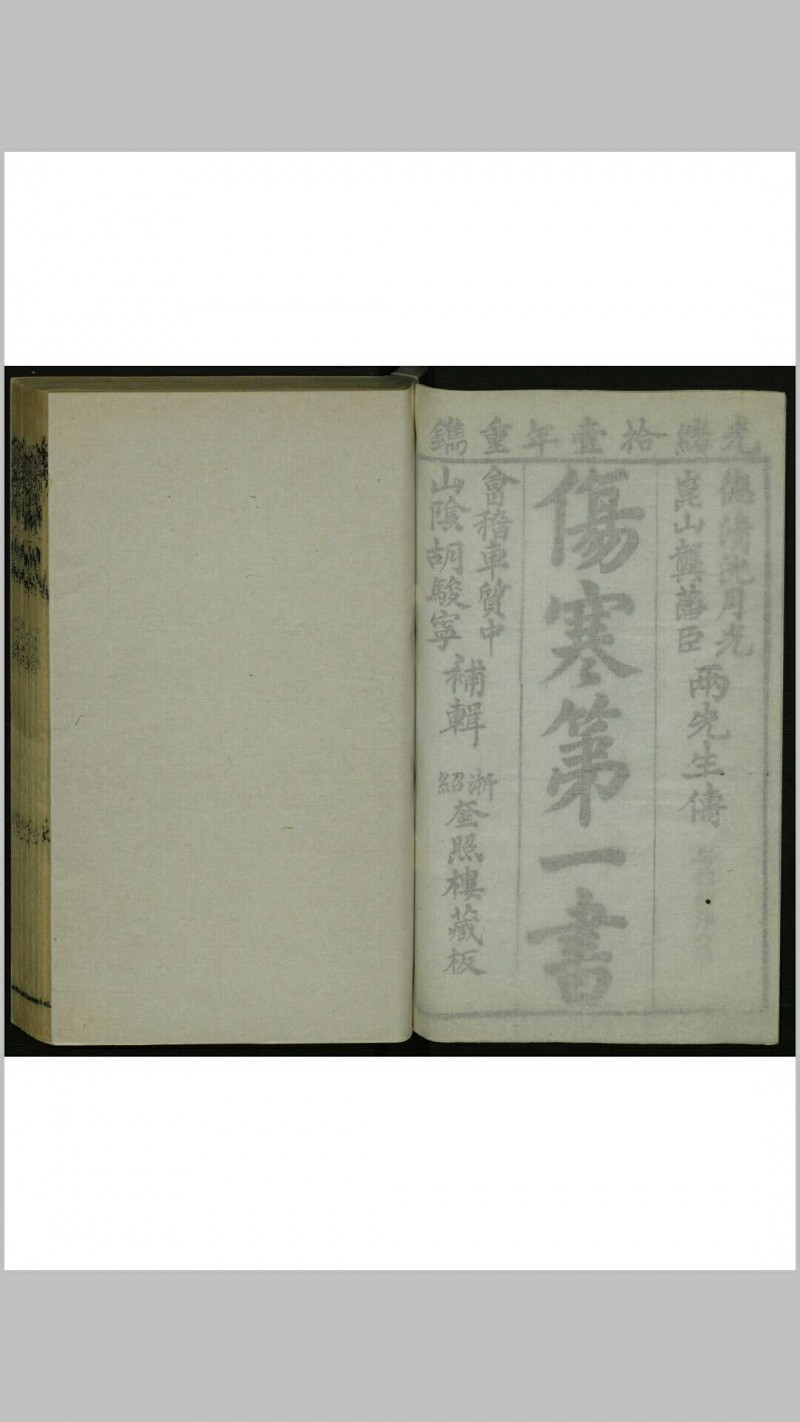 光緒拾壹年重鐫
德清沈月光
崑山龔藩臣
兩先生傳
傷寒第一書
會稽車質中
山陰胡駿寧
補輯
浙紹
奎照樓藏板